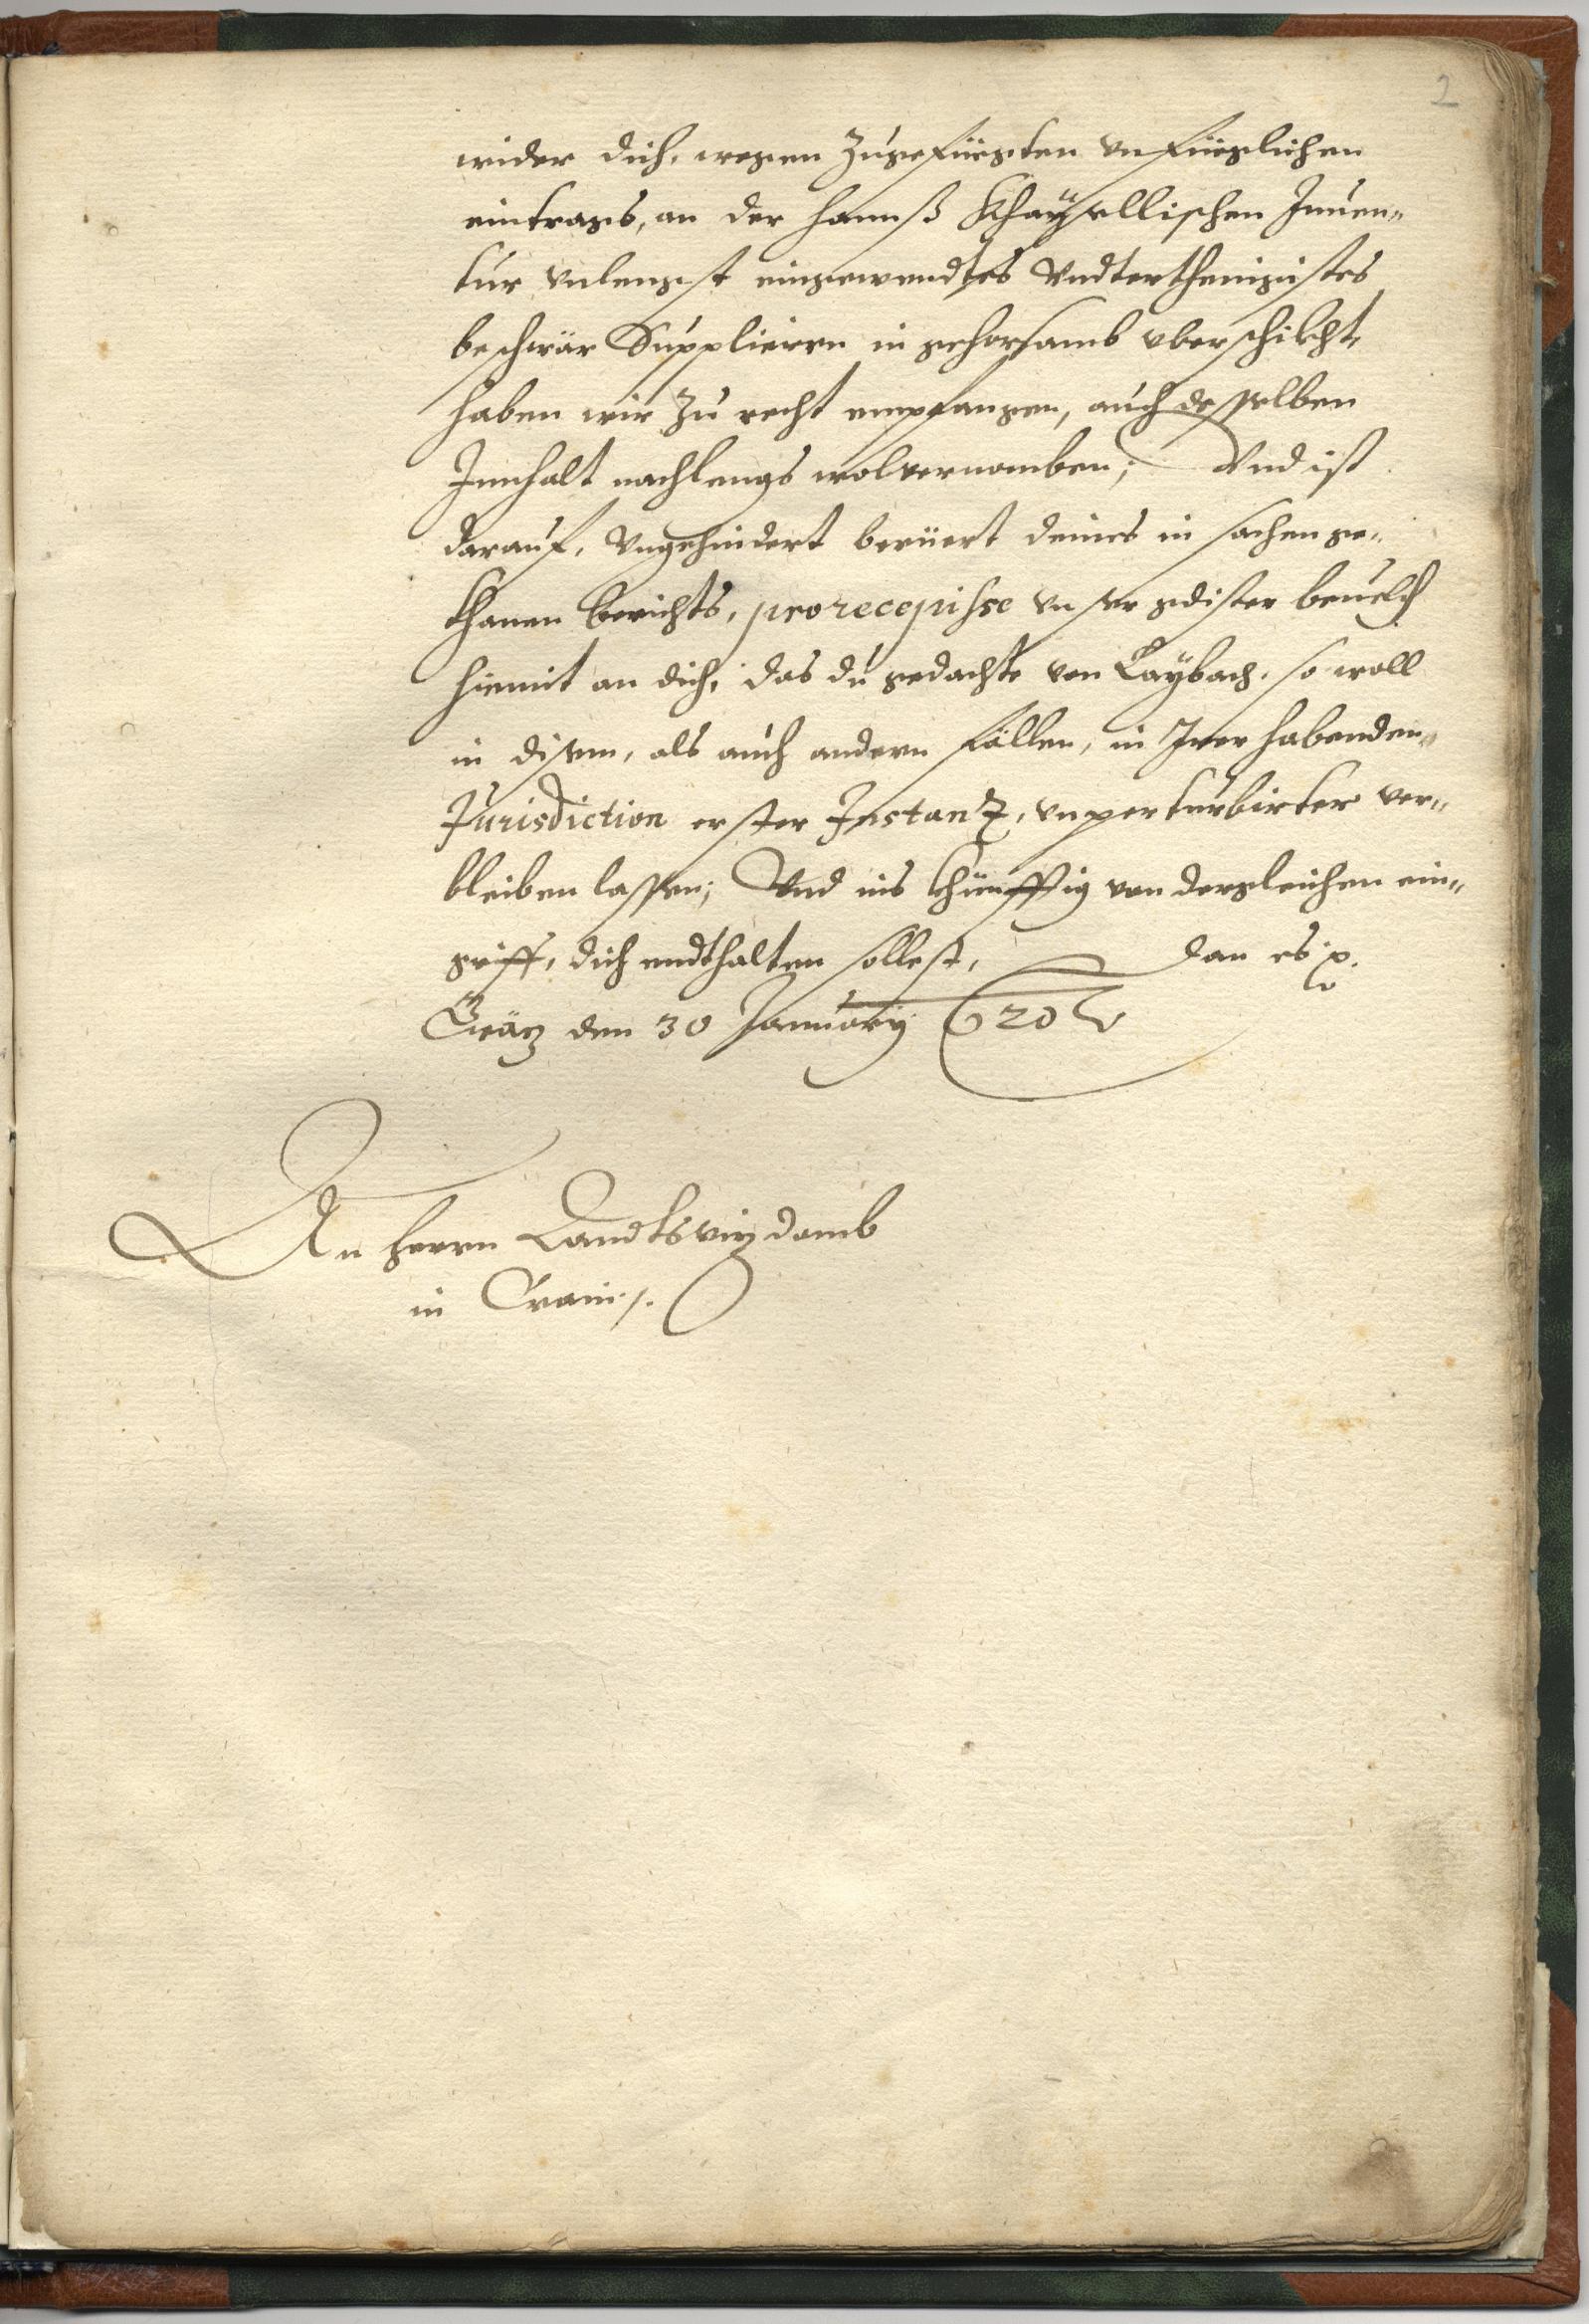 2
wider dich, wegen zuegefüegten vnfüeglichen
eintrags, an der Hannß Khayßellischen Inuen„
tur vnlengst eingewendtes Vndterthenigistes
beschwär Supplicirn in gehorsamb vberschikht,
haben wir zu recht empfangen, auch desselben
Innhalt nachlengs wolvernomben; Vnd ist
darauf, Vngehindert berüert deines in sachen ge„
thanen berichts, pro recepisse vnser gdister beuelch
hiemit an dich, das du gedachte von Laybach, so woll
in disem, als auch andern fällen, in Irer habenden
Jurisdiction erster Instanz, vnperturbirter ver„
bleiben lassen; Vnd ins khünfftig von dergleichen ein„
griff, dich endthalten sollest, Dan es p.
Gräz den 30 January 620
An Herrn Landtsvizdomb
in Crain /.